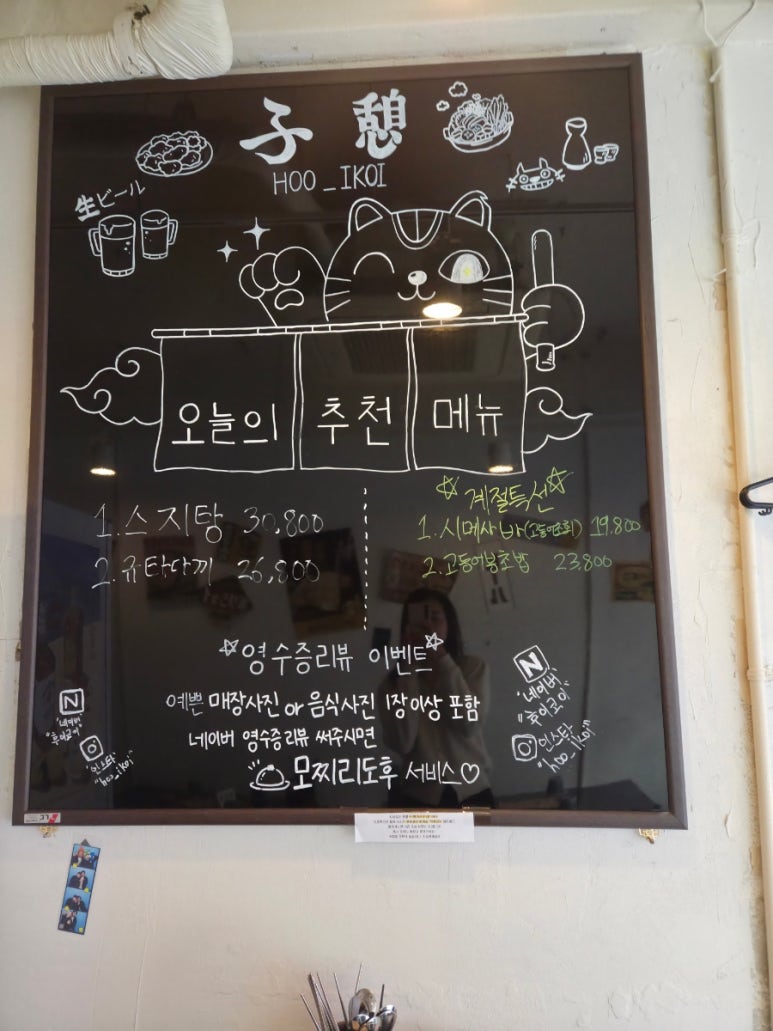 子 憩
HOO_IKOI
生ビール
오늘의 추천 메뉴
1. 스지탕 30,800
2. 규타다끼 26,800
☆계절특선☆
1. 시메사바(고등어초회) 19.800
2. 고등어봉초밥 23,800
☆영수증리뷰 이벤트☆
예쁜 매장사진 or 음식사진 1장이상 포함
네이버 영수증리뷰 써주시면
모찌리도후 서비스♡
N
'네이버'
"후이코이"
'인스타'
"hoo_ikoi"
N
'네이버'
"후이코이"
'인스타'
"hoo_ikoi"